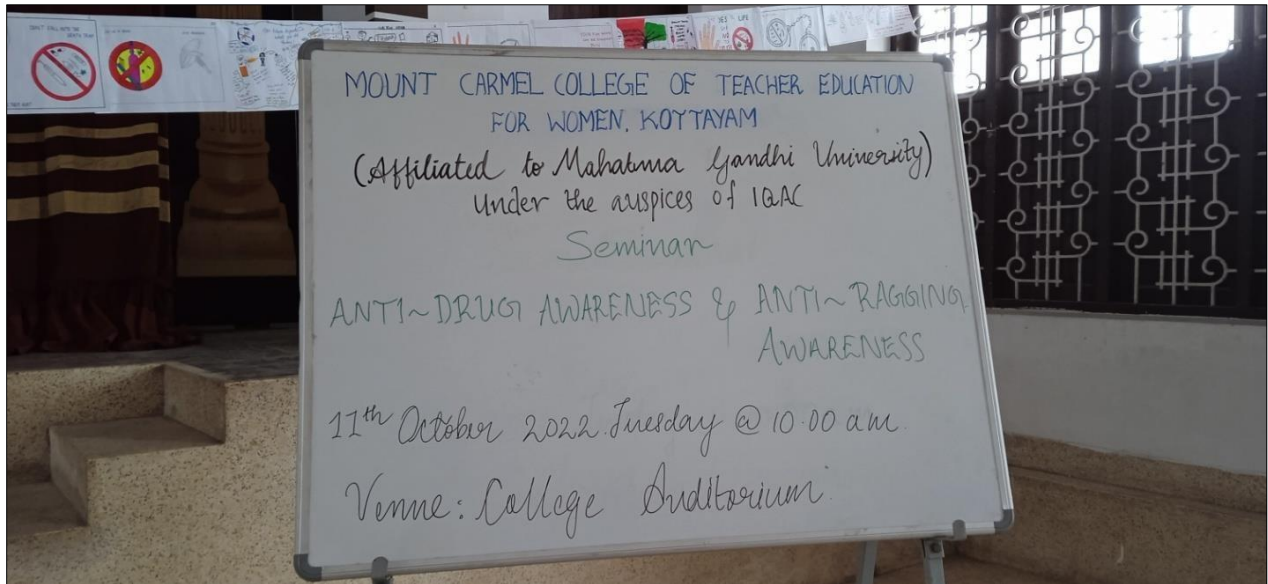 MOUNT CARMEL COLLEGE OF TEACHER EDUCATION
FOR WOMEN, KOTTAYAM
(Affiliated to Mahatma Gandhi University)
Under the auspices of IQAC
Seminar
ANTI~DRUG AWARENESS & ANTI~RAGGING
AWARENESS
11th October 2022 Tuesday @ 10.00 am.
Venue: College Auditorium.